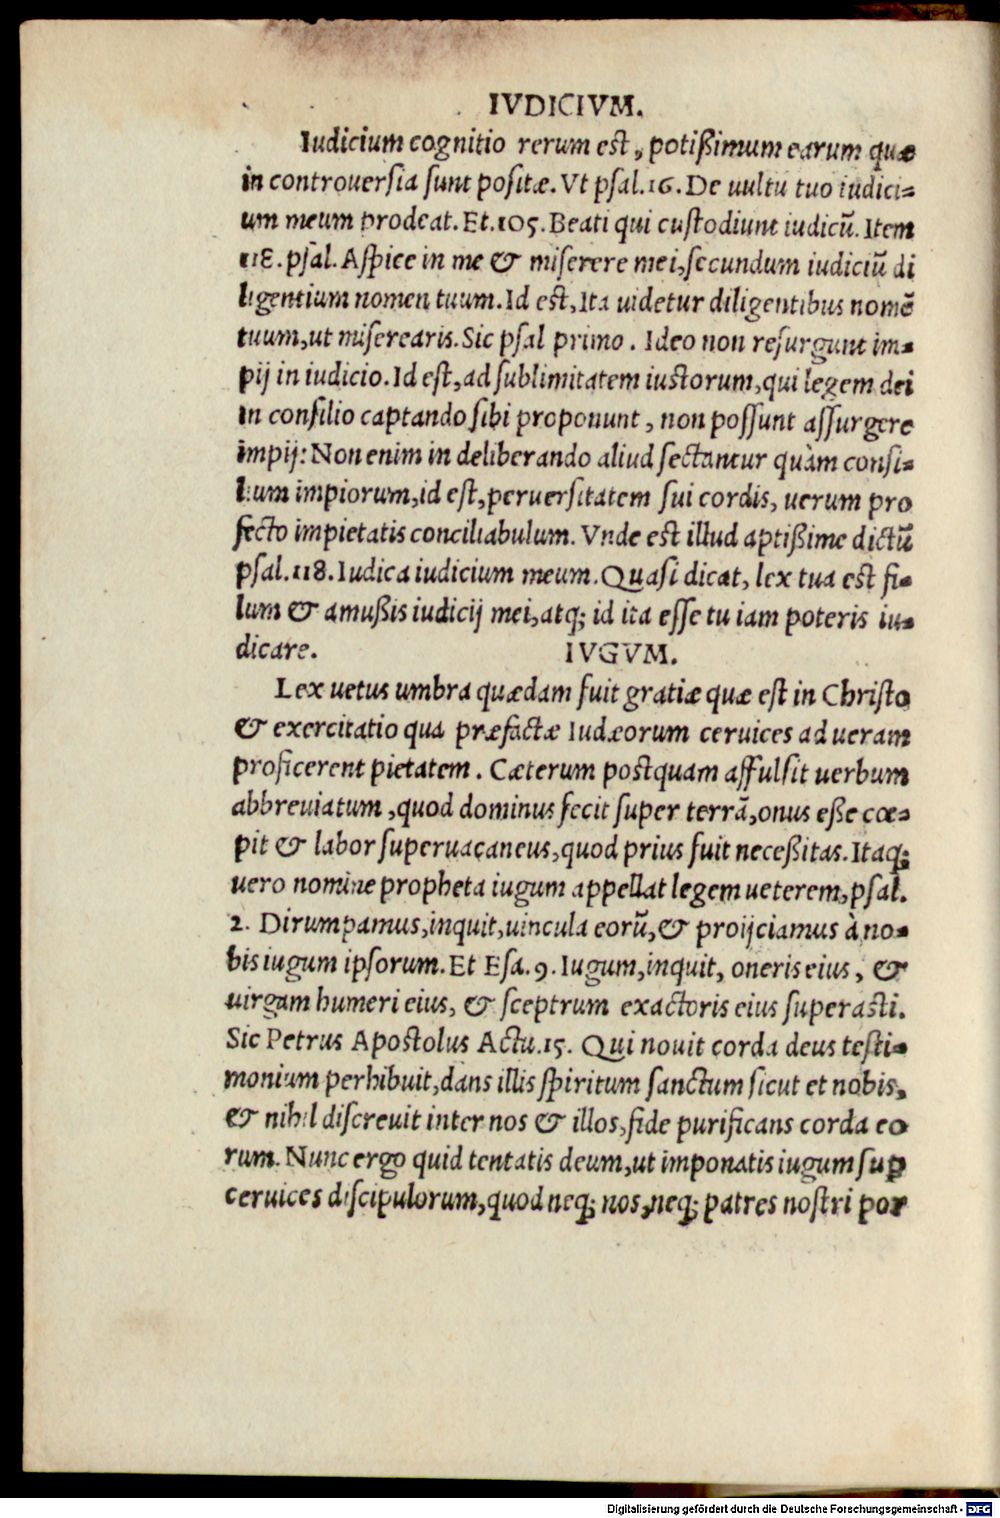 IVDICIVM.
Iudicium cognitio rerum est, potißimum earum quæ
in controuersia sunt positæ. Vt psal.16. De uultu tuo iudici-
um meum prodeat. Et.105. Beati qui custodiunt iudicũ. Item
118. psal. Aspice in me & miserere mei, secundum iudiciũ di
ligentium nomen tuum. Id est, Ita uidetur diligentibus nomẽ
tuum, ut miserearis. Sic psal primo. Ideo non resurgunt im-
pij in iudicio. Id est, ad sublimitatem iustorum, qui legem dei
in consilio captando sibi proponunt, non possunt assurgere
impij: Non enim in deliberando aliud sectantur quàm consi-
lium impiorum, id est, peruersitatem sui cordis, uerum pro
fecto impietatis conciliabulum. Vnde est illud aptißime dictũ
psal.118. Iudica iudicium meum. Quasi dicat, lex tua est fi-
lum & amußis iudicij mei, atq; id ita esse tu iam poteris iu-
dicare. IVGVM.
Lex uetus umbra quædam fuit gratiæ quæ est in Christo
& exercitatio qua præfactæ Iudæorum ceruices ad ueram
proficerent pietatem. Cæterum postquam affulsit uerbum
abbreuiatum, quod dominus fecit super terrã, onus eße cœ-
pit & labor superuacaneus, quod prius fuit neceßitas. Itaq;
uero nomine propheta iugum appellat legem ueterem, psal.
2. Dirumpamus, inquit, uincula eorũ, & proijciamus à no-
bis iugum ipsorum. Et Esa.9. Iugum, inquit, oneris eius, &
uirgam humeri eius, & sceptrum exactoris eius superasti.
Sic Petrus Apostolus Actu.15. Qui nouit corda deus testi-
monium perhibuit, dans illis spiritum sanctum sicut et nobis,
& nihil discreuit inter nos & illos, fide purificans corda eo
rum. Nunc ergo quid tentatis deum, ut imponatis iugum suꝑ
ceruices discipulorum, quod neq; nos, neq; patres nostri por
Digitalisierung gefördert durch die Deutsche Forschungsgemeinschaft - DFG